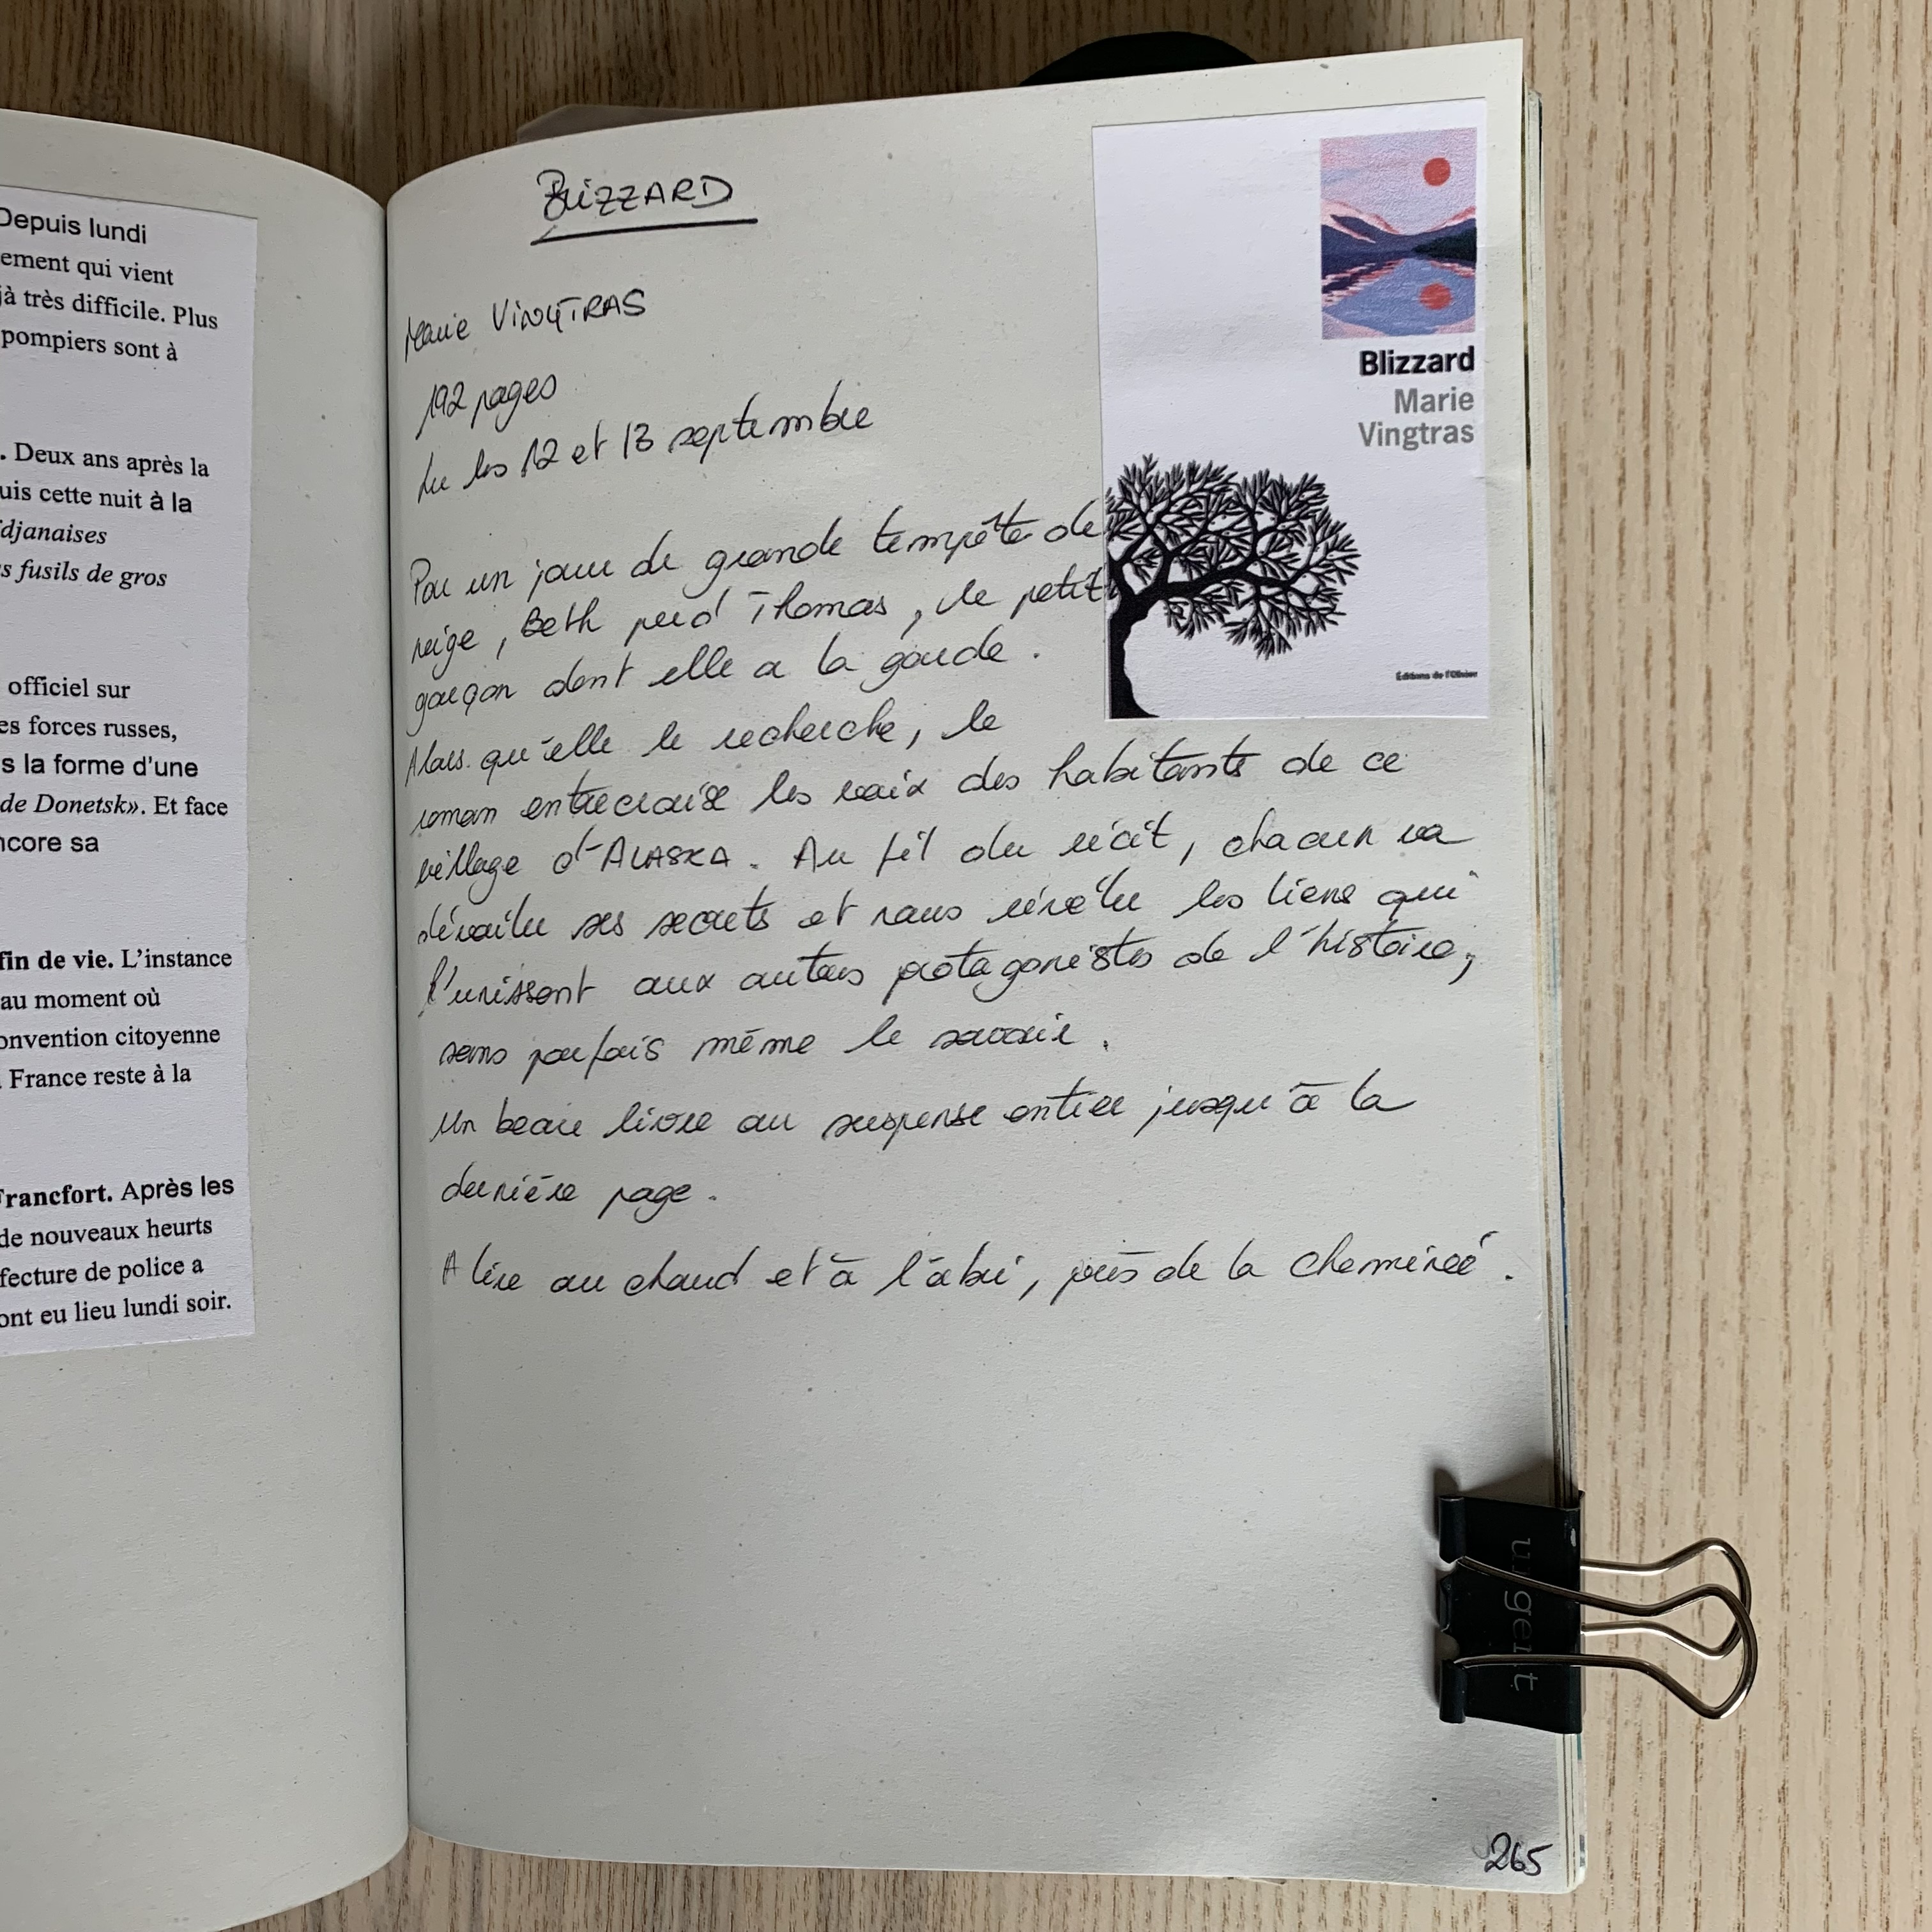 Depuis lundi
ement qui vient
jà très difficile. Plus
pompiers sont à
. Deux ans après la
uis cette nuit à la
djanaises
s fusils de gros
officiel sur
es forces russes,
s la forme d'une
de Donetsk». Et face
ncore sa
fin de vie. L'instance
au moment où
onvention citoyenne
. France reste à la
Francfort. Après les
de nouveaux heurts
fecture de police a
ont eu lieu lundi soir.
BLIZZARD
Marie VINGTRAS
192 pages
Lu les 12 et 13 septembre
Par un jour de grande tempête de
neige, Beth perd Thomas, le petit
garçon dont elle a la garde.
Alors qu'elle le recherche, le
roman entrecroise les voix des habitants de ce
village d'ALASKA. Au fil du récit, chacun va
dévoiler ses secrets et nous révéler les liens qui
l'unissent aux autres protagonistes de l'histoire,
sans parfois même le savoir.
Un beau livre au suspense entier jusqu'à la
dernière page.
A lire au chaud et à l'abri, près de la cheminée.
Blizzard
Marie
Vingtras
Éditions de l'Olivier
urgent
265